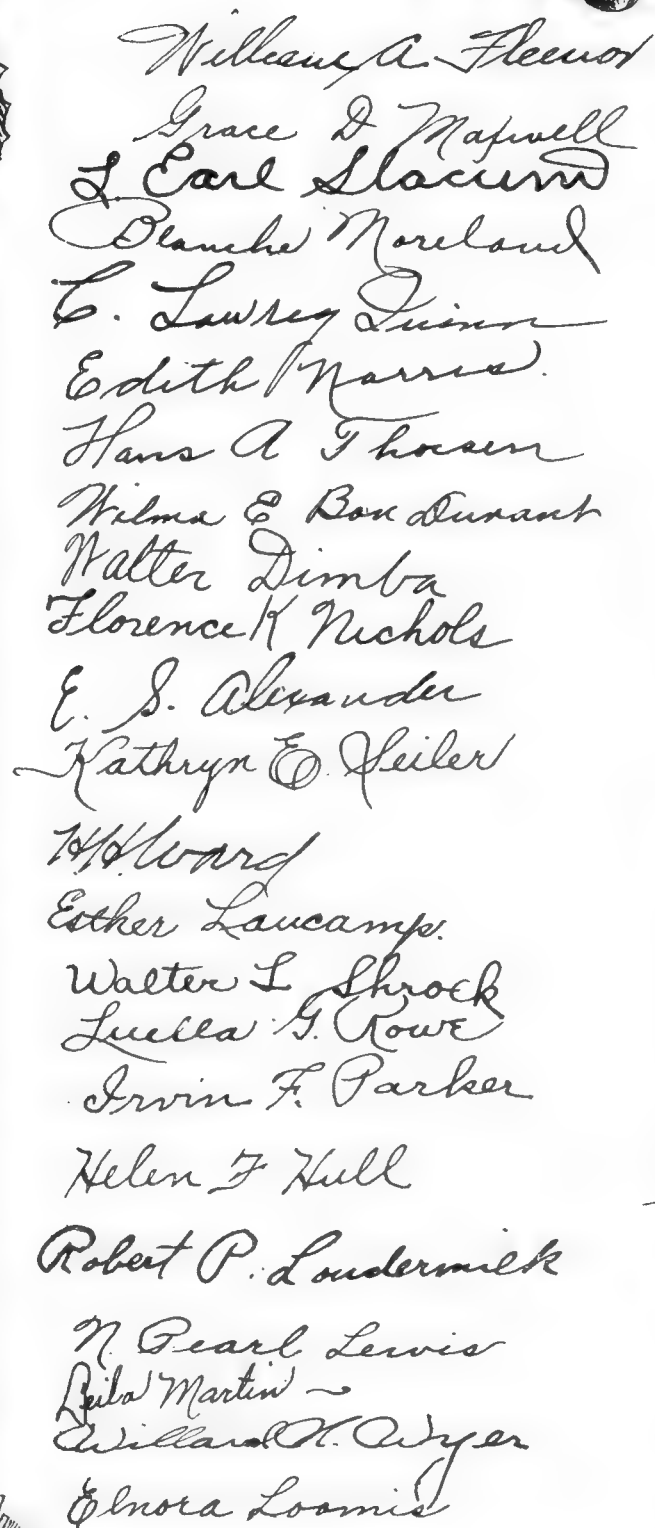 William A. Fleenor
Grace D Maxwell
L. Earl Slocum
Blanche Moreland
C. Lowrey Quinn
Edith Norris.
Hans A Thoesen
Wilma E Bon Durant
Walter Dimba
Florence K Nichols
E. S. Alexander
Kathryn E. Seiler
H. H. Ward
Esther Laucamp.
Walter L Shrock
Luella G. Rowe
Irvin F. Parker
Helen F Hull
Robert P. Loudermilk
N. Pearl Lewis
Leila Martin
Willard N. Wyer
Elnora Loomis